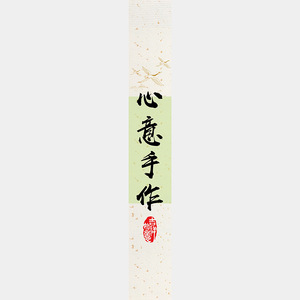 心意手作